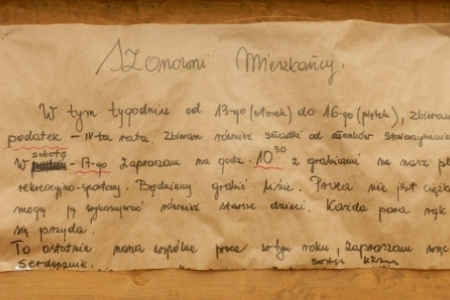 Szanowni Mieszkańcy.
W tym tygodniu od 13-go (wtorek) do 16-go (piątek), zbieram
podatek - IV-ta rata. Zbieram również składki od członków Stowarzyszenia
sobotę
W - 17-go zapraszam na godz. 10 30 z grabiami na nasz pl
rekreacyjno-sportowy. Będziemy grabić liście. Praca nie jest ciężka
mogą ją wykonywać również starsze dzieci. Każda para rąk
się przyda.
To ostatnia nasza wspólna praca w tym roku, zapraszam więc
serdecznie.
sołtys